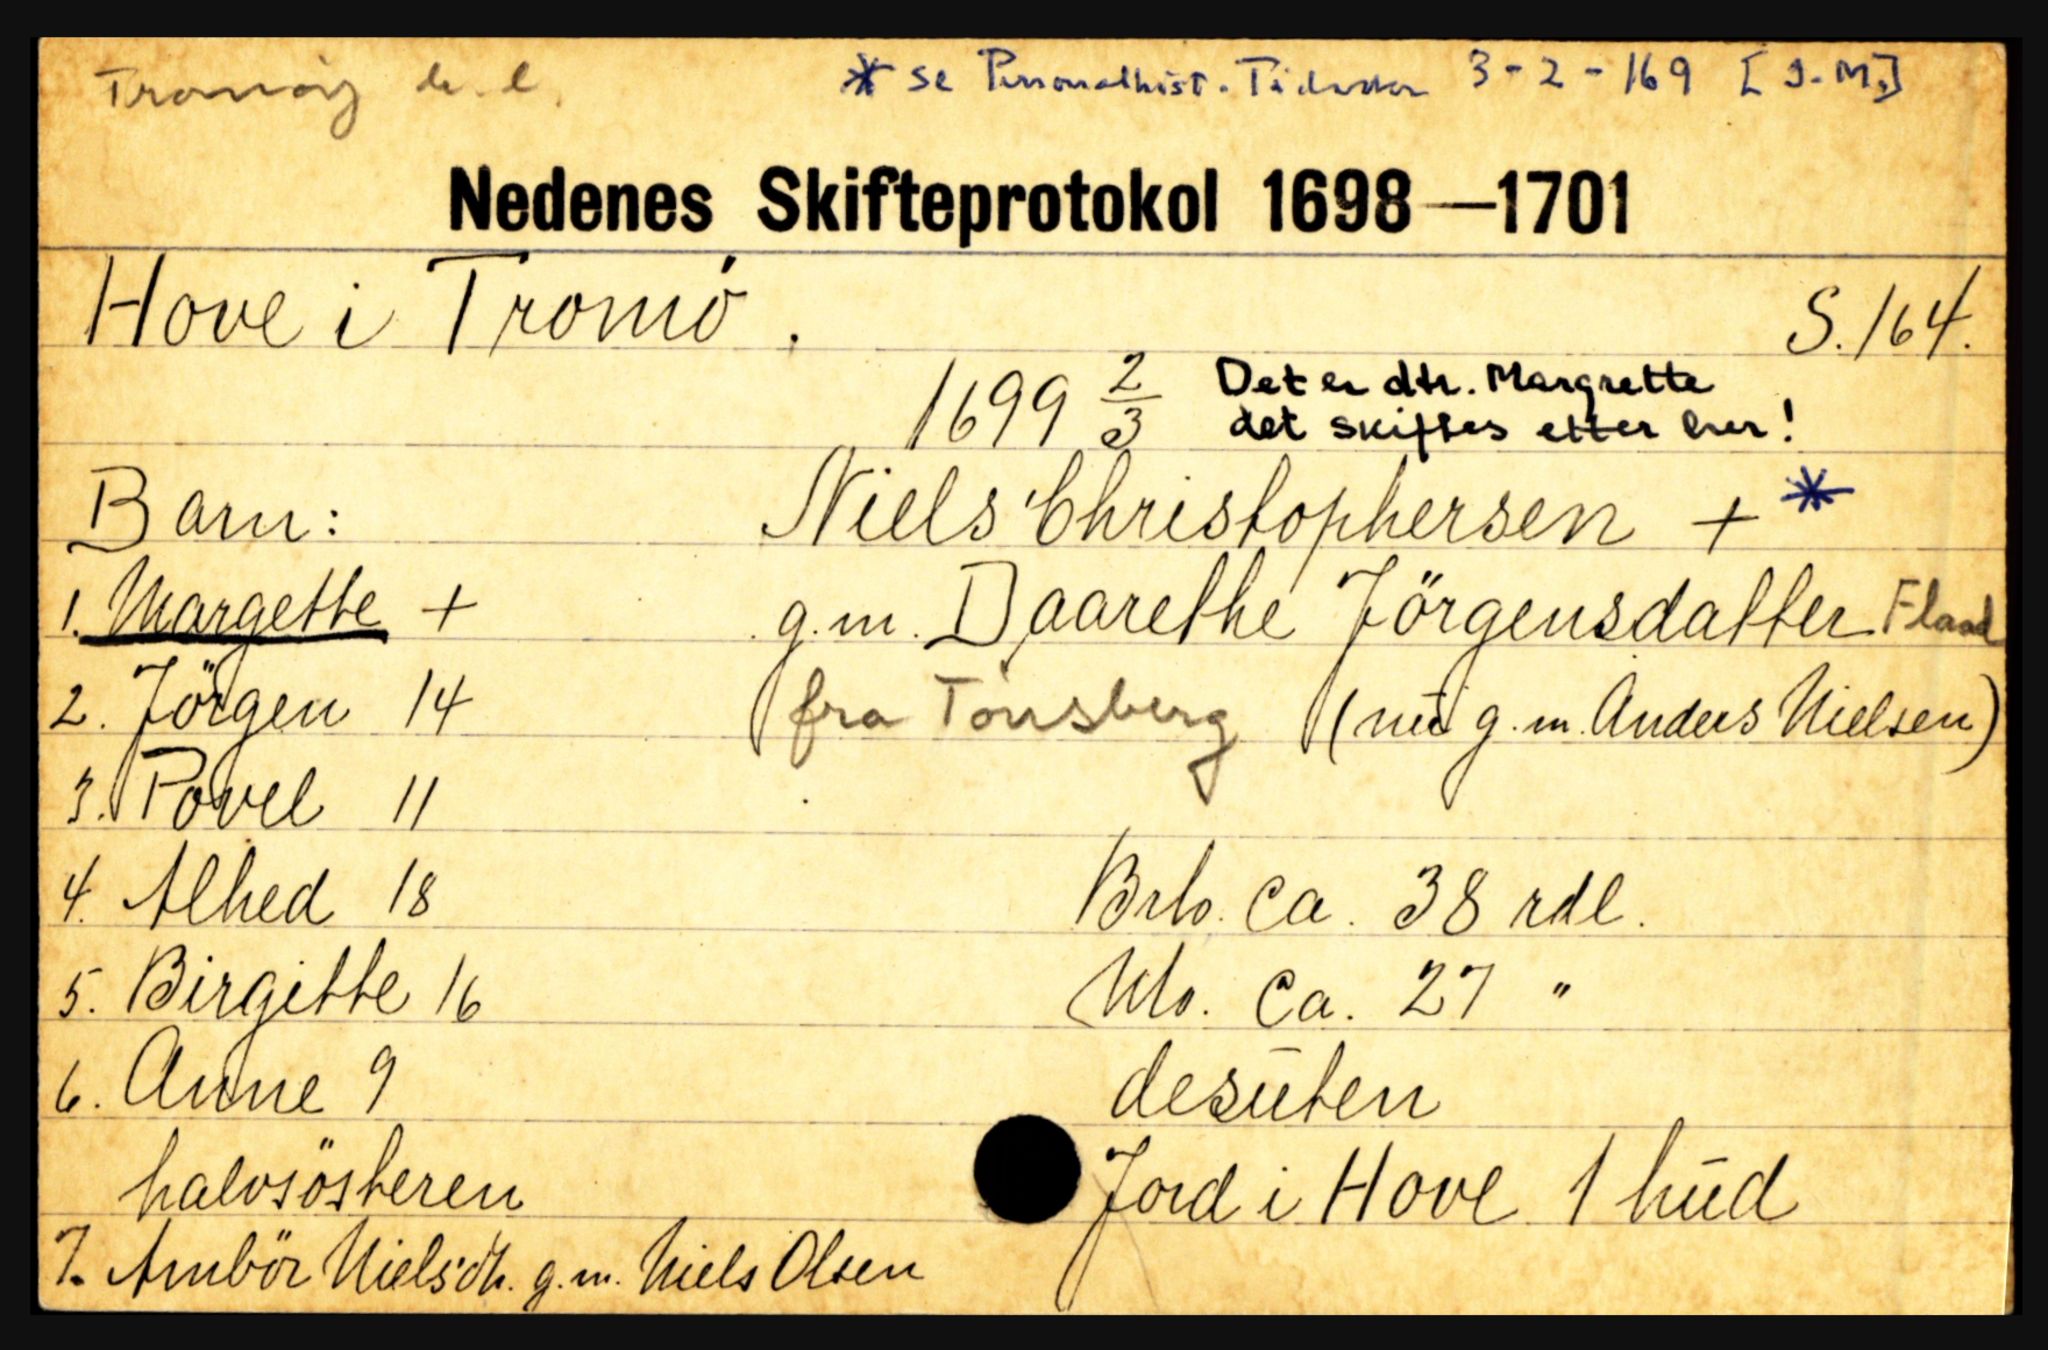 Tromöy * se Personalhist. Tidsskr 3-2-169 [J.M.]
Nedenes Skifteprotokol 1698—1701
Hove i Tromö. S. 164.
1699 2/3 Det er dtr. Margrette
det skiftes etter her!
Barn: Niels Christophersen + *
1. Margette + g.m. Daarethe Jörgensdatter Flaad
2. Jörgen 14 fra Tönsberg (nū g.m. Anders Nielsen)
3. Povel 11
4. Alhed 18 Brto. ca. 38 rdl.
5. Birgitte 16 Nto. ca. 27 "
6. Anne 9 desūten
halvsösteren Jord i Hove 1 hūd
7. Anbör Nielsdtr. g.m. Niels Olsen